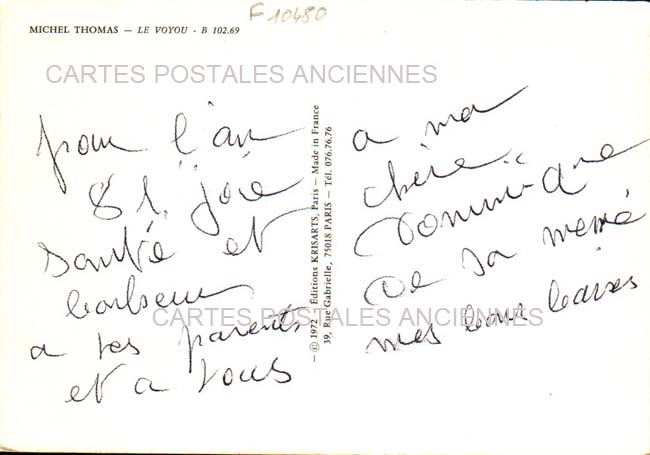 F10480
MICHEL THOMAS — LE VOYOU - B 102.69
CARTES POSTALES ANCIENNES
pour l'an
81. joie
santé et
bonheur
a tes parents
et a vous
— © 1972 — Éditions KRISARTS, Paris — Made in France
39, Rue Gabrielle, 75018 PARIS — Tél. 076.76.76
a ma
chère
Dominique
De sa mémé
mes bons baisers
CARTES POSTALES ANCIENNES